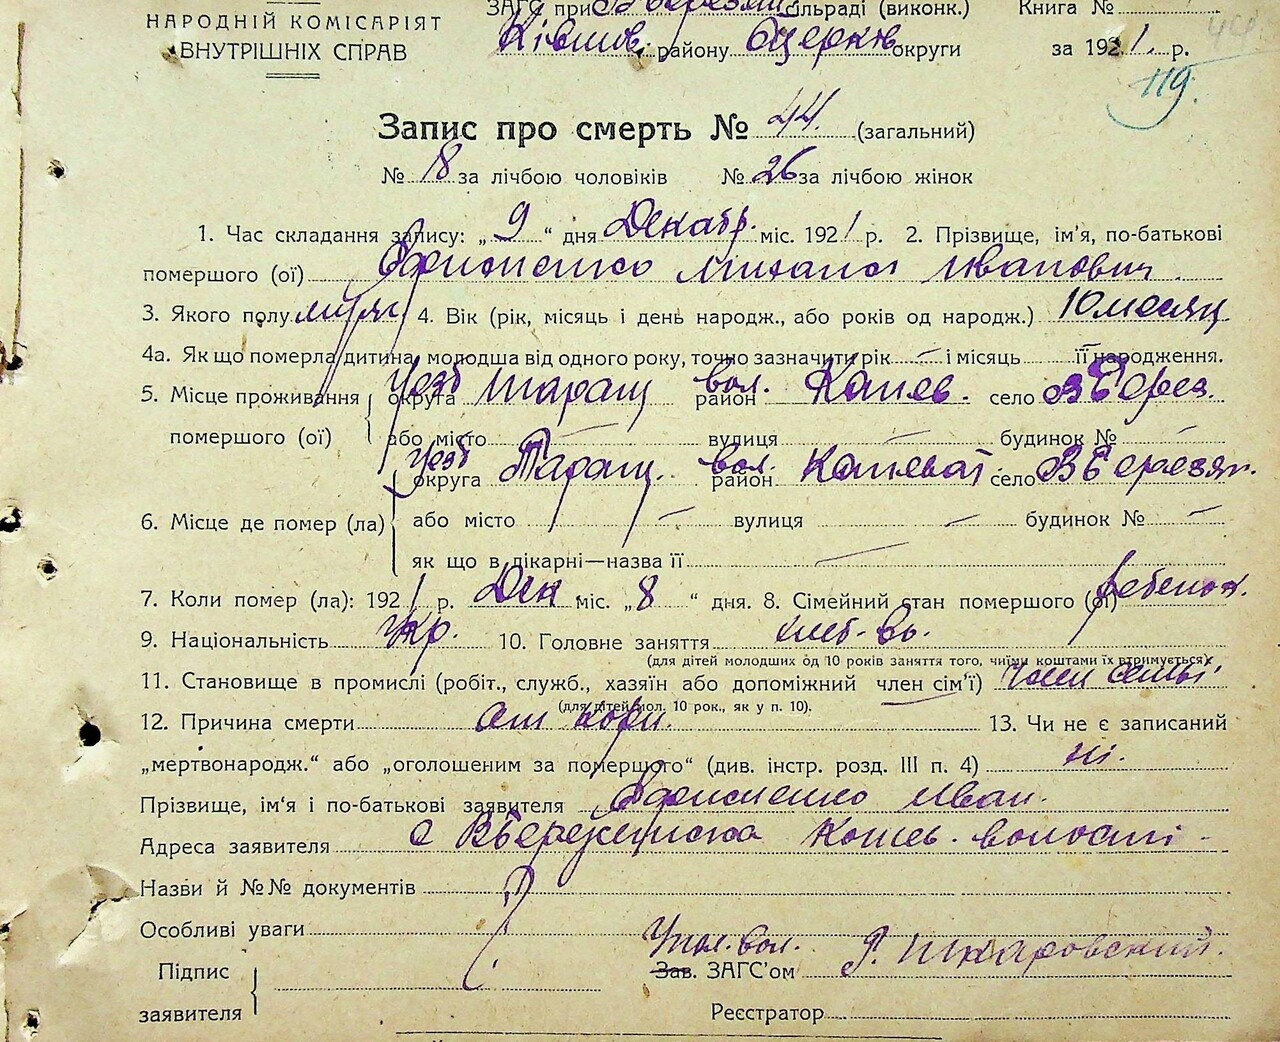 НАРОДНІЙ КОМІСАРІЯТ
ВНУТРІШНІХ СПРАВ
ЗАГС при сільраді (виконк.) Книга №
району округи за 1921. р.
119.
Запис про смерть № 44. (загальний)
№ 18 за лічбою чоловіків № 26 за лічбою жінок
1. Час складання запису: „ 9 “ дня Декабр. міс. 1921 р. 2. Прізвище, ім'я, по-батькові
помершого (ої) Михаил Иванович
3. Якого полу муж 4. Вік (рік, місяць і день народж., або років од народж.) 10 месяц
4а. Як що померла дитина, молодша від одного року, точно зазначити рік — і місяць її народження.
5. Місце проживання округа Уезд Таращ район вол. Кошев. село
помершого (ої) або місто — вулиця — будинок № —
округа Уезд Таращ. район вол. село
6. Місце де помер (ла) або місто — вулиця — будинок № —
як що в лікарні—назва її —
7. Коли помер (ла): 1921 р. Дек міс. „ 8 “ дня. 8. Сімейний стан помершого (ої) ребенок.
9. Національність Укр. 10. Головне заняття хлеб-въ.
(для дітей молодших од 10 років заняття того, чиїми коштами їх втримується)
11. Становище в промислі (робіт., служб., хазяїн або допоміжний член сім'ї) член семьі
(для дітей мол. 10 рок., як у п. 10).
12. Причина смерти от кори. 13. Чи не є записаний
„мертвонародж.“ або „оголошеним за помершого“ (див. інстр. розд. III п. 4) ні.
Прізвище, ім'я і по-батькові заявителя Иван.
Адреса заявителя с Кошев. волості -
Назви й №№ документів
Особливі уваги
Упол. вол.
Підпис
заявителя
Зав. ЗАГС'ом Р. Шкаровский.
Реєстратор